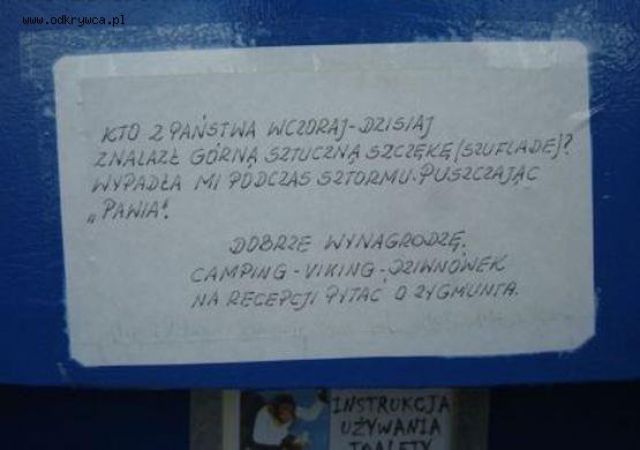 www.odkrywca.pl
KTO Z PAŃSTWA WCZORAJ-DZISIAJ
ZNALAZŁ GÓRNĄ SZTUCZNĄ SZCZĘKĘ (SZUFLADĘ)?
WYPADŁA MI PODCZAS SZTORMU. PUSZCZAJĄC
„PAWIA".
DOBRZE WYNAGRODZĘ.
CAMPING-VIKING-DZIWNÓWEK
NA RECEPCJI PYTAĆ O ZYGMUNTA.
INSTRUKCJA
UŻYWANIA
TOALETY